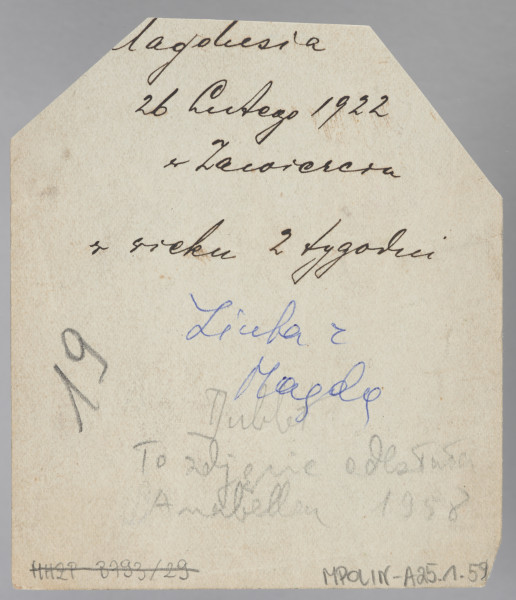 Magdusia
26 Lutego 1922
w Zawierciu
w wieku 2 tygodni
Liuba z
Magdą
19
Dublet
To zdjęcie
Anabella 1958
HH2P 3793/29
MPOLIN-A25.1.59